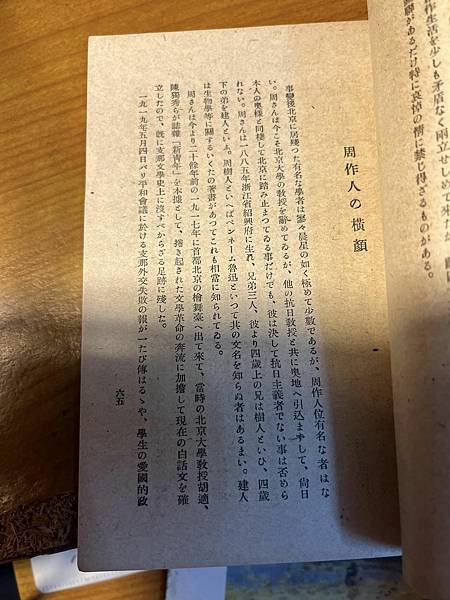 作生活を少しも矛盾なく兩立せしめて來たが、
關があるだけ特に哀悼の情に禁じ得ざるものがある。
周作人の橫顏
事變後北京に居殘つた有名な學者は寥々晨星の如く極めて少數であるが、周作人位有名な者はな
い。周さんは今こそ北京大學の敎授を辭めてゐるが、他の抗日敎授と共に奧地へ引込まずして、尙日
本人の奧樣と同棲して北京に踏み止まつてゐる事だけでも、彼は決して抗日主義者でない事は否めら
れない。周さんは一八八五年浙江省紹興府に生れ、兄弟三人、彼より四歲上の兄は樹人といひ、四歲
下の弟を建人といふ。周樹人といへばペンネーム魯迅といつて其の文名を知らぬ者はあるまい。建人
は生物學等に關するいくたの著書があつてこれも相當に知られてゐる。
周さんは今より二十餘年前の一九一七年に首都北京の檜舞臺へ出て來て、當時の北京大學敎授胡適、
陳獨秀らが誌雜『新靑年』を本據として、捲き起された文學革命の奔流に加擔して現在の白話文を確
立したので、旣に支那文學史上に沒すべからざる足跡に殘した。
一九一九年五月四日パリ平和會議に於ける支那外交失敗の報が一たび傳はるゝや、學生の愛國的政
六五